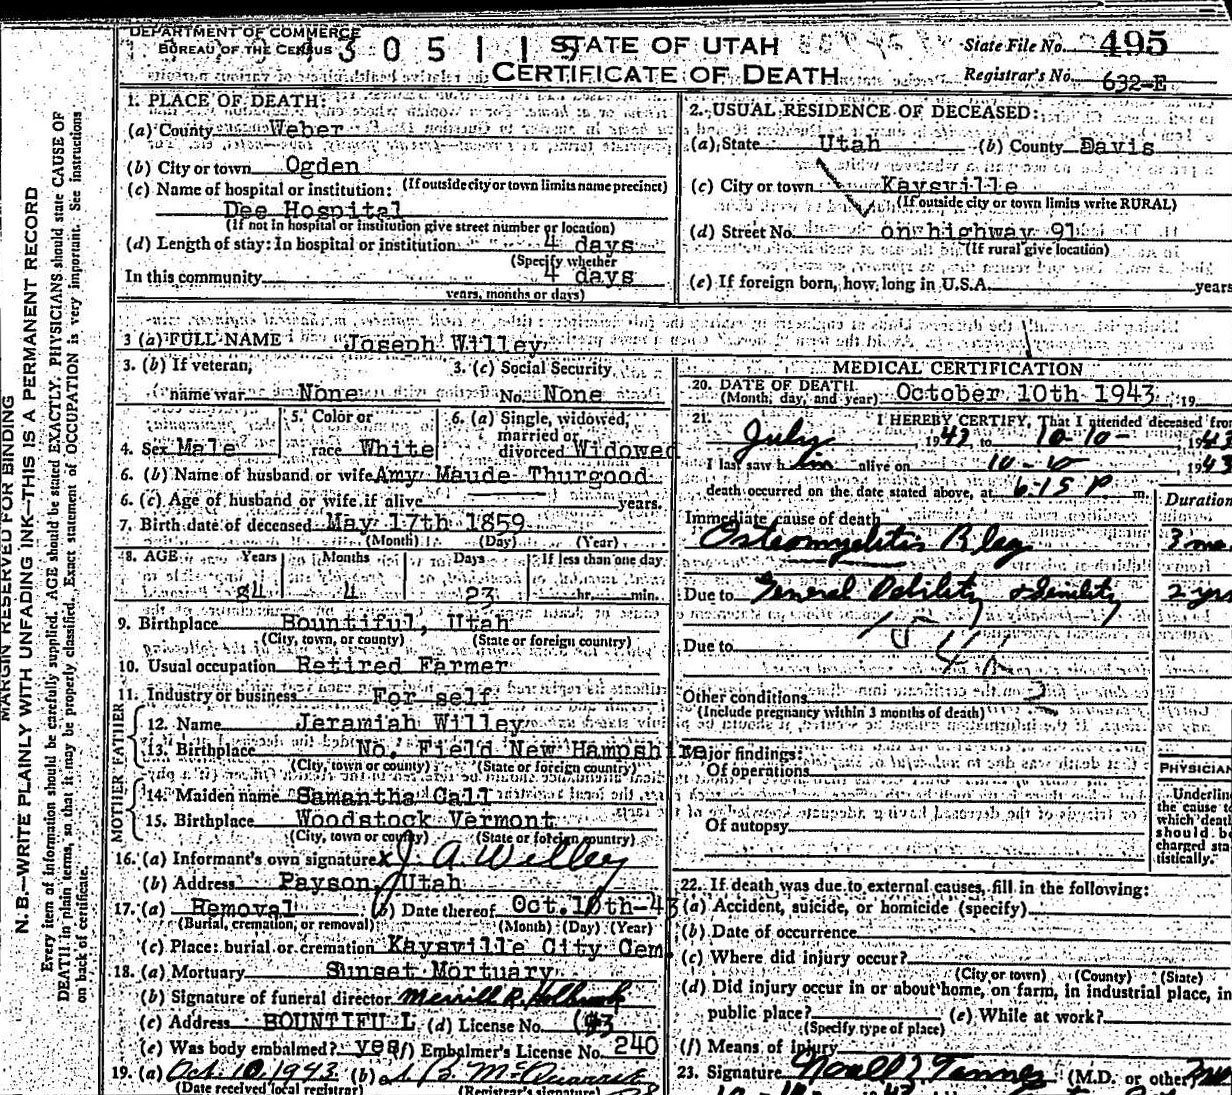 DEPARTMENT OF COMMERCE
BUREAU OF THE CENSUS
4305119
STATE OF UTAH
CERTIFICATE OF DEATH
State File No. 495
Registrar's No. 632-E
MARGIN RESERVED FOR BINDING
N. B.—WRITE PLAINLY WITH UNFADING INK—THIS IS A PERMANENT RECORD
Every item of information should be carefully supplied. AGE should be stated EXACTLY. PHYSICIANS should state CAUSE OF
DEATH in plain terms, so that it may be properly classified. Exact statement of OCCUPATION is very important. See instructions
on back of certificate.
1. PLACE OF DEATH:
(a) County Weber
(b) City or town Ogden
(If outside city or town limits name precinct)
(c) Name of hospital or institution:
Dee Hospital
(If not in hospital or institution give street number or location)
(d) Length of stay: In hospital or institution 4 days
(Specify whether
In this community 4 days
years, months or days)
2. USUAL RESIDENCE OF DECEASED:
(a) State Utah (b) County Davis
(c) City or town Kaysville
(If outside city or town limits write RURAL)
(d) Street No. on highway 91
(If rural give location)
(e) If foreign born, how long in U.S.A. years
3 (a) FULL NAME Joseph Willey
3. (b) If veteran,
name war None
3. (c) Social Security
No. None
4. Sex Male
5. Color or
race White
6. (a) Single, widowed,
married or
divorced Widowed
6. (b) Name of husband or wife Amy Maude Thurgood
6. (c) Age of husband or wife if alive years.
7. Birth date of deceased May 17th 1859
(Month) (Day) (Year)
8. AGE Years Months Days If less than one day
84 4 23 hr. min.
9. Birthplace Bountiful, Utah
(City, town, or county) (State or foreign country)
10. Usual occupation Retired Farmer
11. Industry or business For self
FATHER
12. Name Jeramiah Willey
13. Birthplace No. Field New Hampshire
(City, town, or county) (State or foreign country)
MOTHER
14. Maiden name Samantha Call
15. Birthplace Woodstock Vermont
(City, town or county) (State or foreign country)
16. (a) Informant's own signature x J. A. Willey
(b) Address Payson, Utah
17. (a) Removal (b) Date thereof Oct. 10th-43
(Burial, cremation, or removal) (Month) (Day) (Year)
(c) Place: burial or cremation Kaysville City Cem.
18. (a) Mortuary Sunset Mortuary
(b) Signature of funeral director Merrill R. Holbrook
(c) Address BOUNTIFUL (d) License No.
(e) Was body embalmed? yes (f) Embalmer's License No. 240
19. (a) Oct. 10, 1943 (b)
(Date received local registrar) (Registrar's signature)
MEDICAL CERTIFICATION
20. DATE OF DEATH October 10th 1943, 19
(Month, day, and year)
21. I HEREBY CERTIFY, That I attended deceased from
July 1943 to 10-10- 1943
I last saw him alive on 10-10, 1943
death occurred on the date stated above, at 6:15 P. m.
Duration
Immediate cause of death
Osteomyelitis R leg 3 mo.
Due to General Debility & Senility 2 yrs
Due to
Other conditions
(Include pregnancy within 3 months of death)
Major findings:
Of operations
Of autopsy
PHYSICIAN
Underline
the cause to
which death
should be
charged sta-
tistically.
22. If death was due to external causes, fill in the following:
(a) Accident, suicide, or homicide (specify)
(b) Date of occurrence
(c) Where did injury occur?
(City or town) (County) (State)
(d) Did injury occur in or about home, on farm, in industrial place, in
public place? (e) While at work?
(Specify type of place)
(f) Means of injury
23. Signature Noall Z Tanner (M.D. or other)